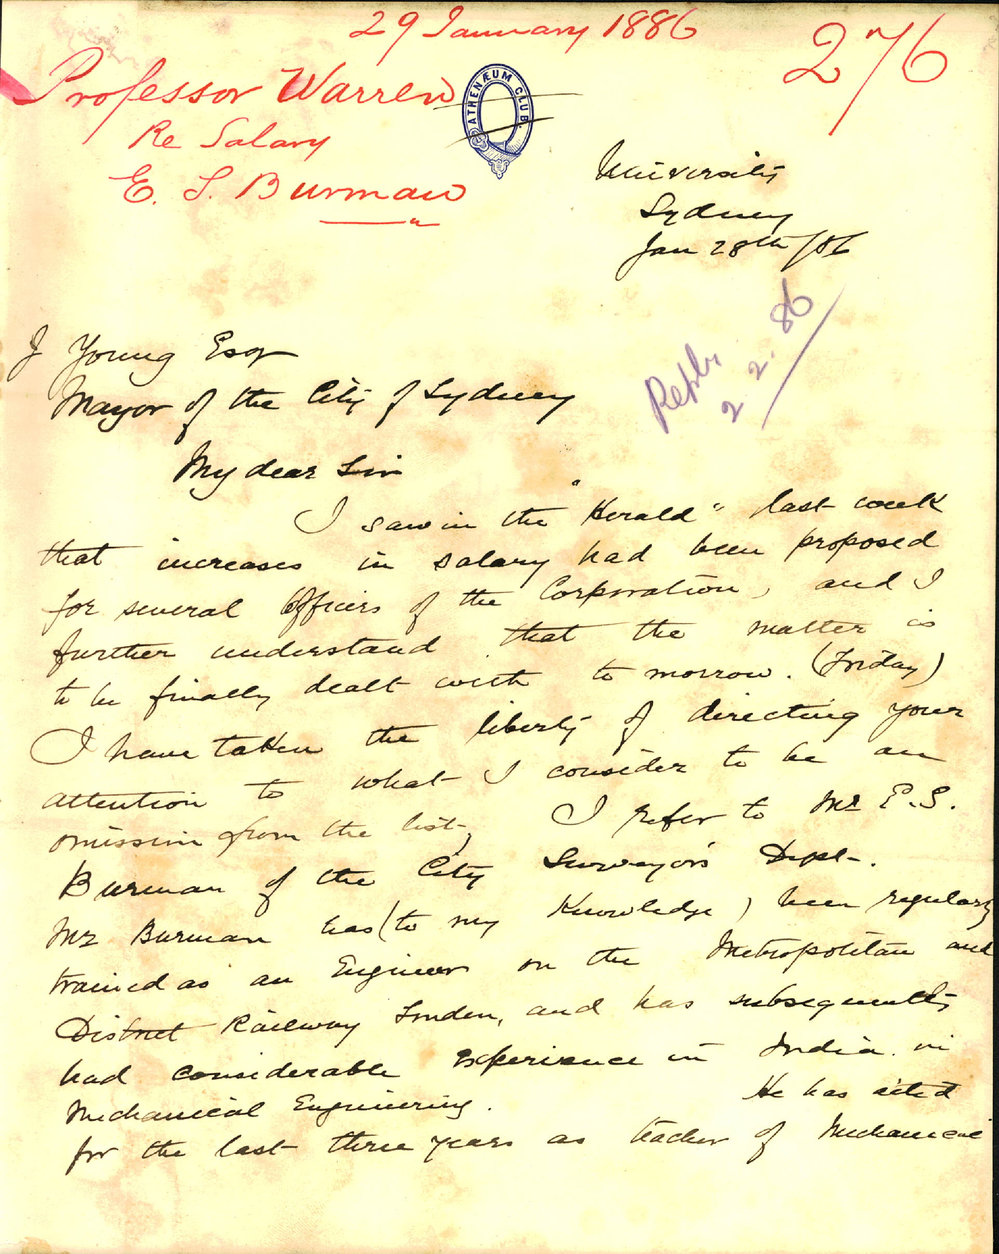 29 January 1886
276
Professor Warren
Re Salary
E. S. Burman
ATHENÆUM CLUB.
University
Sydney
Jan 28th/86
2.2.86
J Young Esqr
Mayor of the City of Sydney
My dear Sir
I saw in the "Herald" last week
that increases in salary had been proposed
for several Officers of the Corporation, and I
further understand that the matter is
to be finally dealt with to morrow. (Friday)
I have taken the liberty of directing your
attention to what I consider to be an
omission from the list, I refer to Mr E.S.
Burman of the City Surveyors Dept.
Mr Burman has (to my Knowledge) been regularly
trained as an Engineer on the Metropolitan and
District Railway London, and has subsequently
had considerable experience in India in
Mechanical Engineering. He has acted
for the last three years as teacher of Mechanical